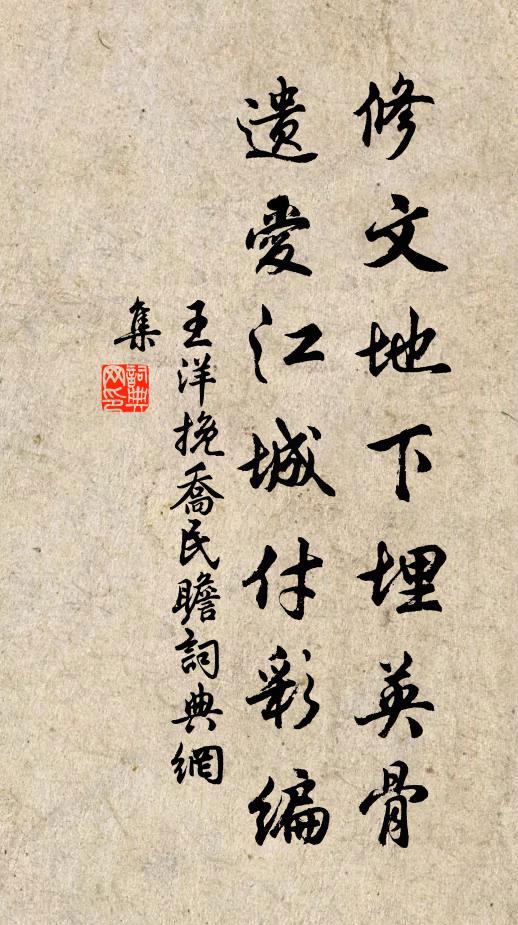 修文地下埋英骨
遺愛江城付彩編
王洋挽喬民瞻詞典網
集
詞典網印